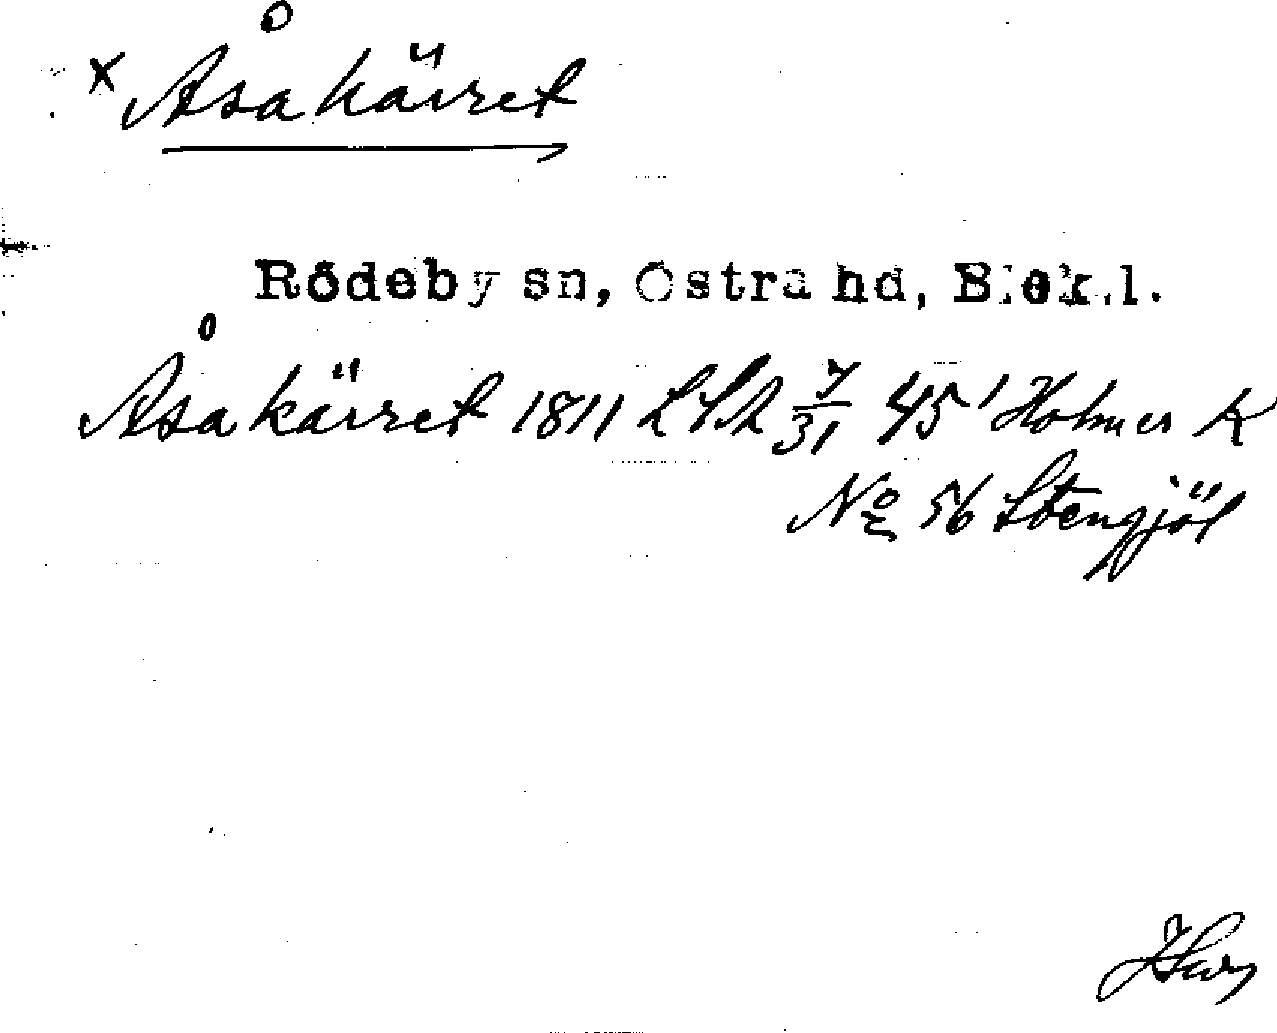 x Åsakärret
Rödeby sn, Östra hd, Blek.l.
Åsakärret 1811 LSA 7/31 45 Holmen K
No 56 Stengjöl